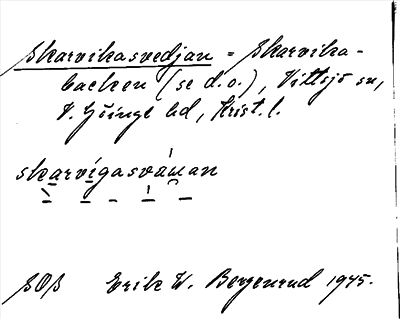 Skarvikasvedjan = Skarvika-
backen (se d.o.), Vittsjö sn,
V. Göinge hd, Krist. l.
skarvígasváɯan
SOS Erik W. Bergenrud 1945.